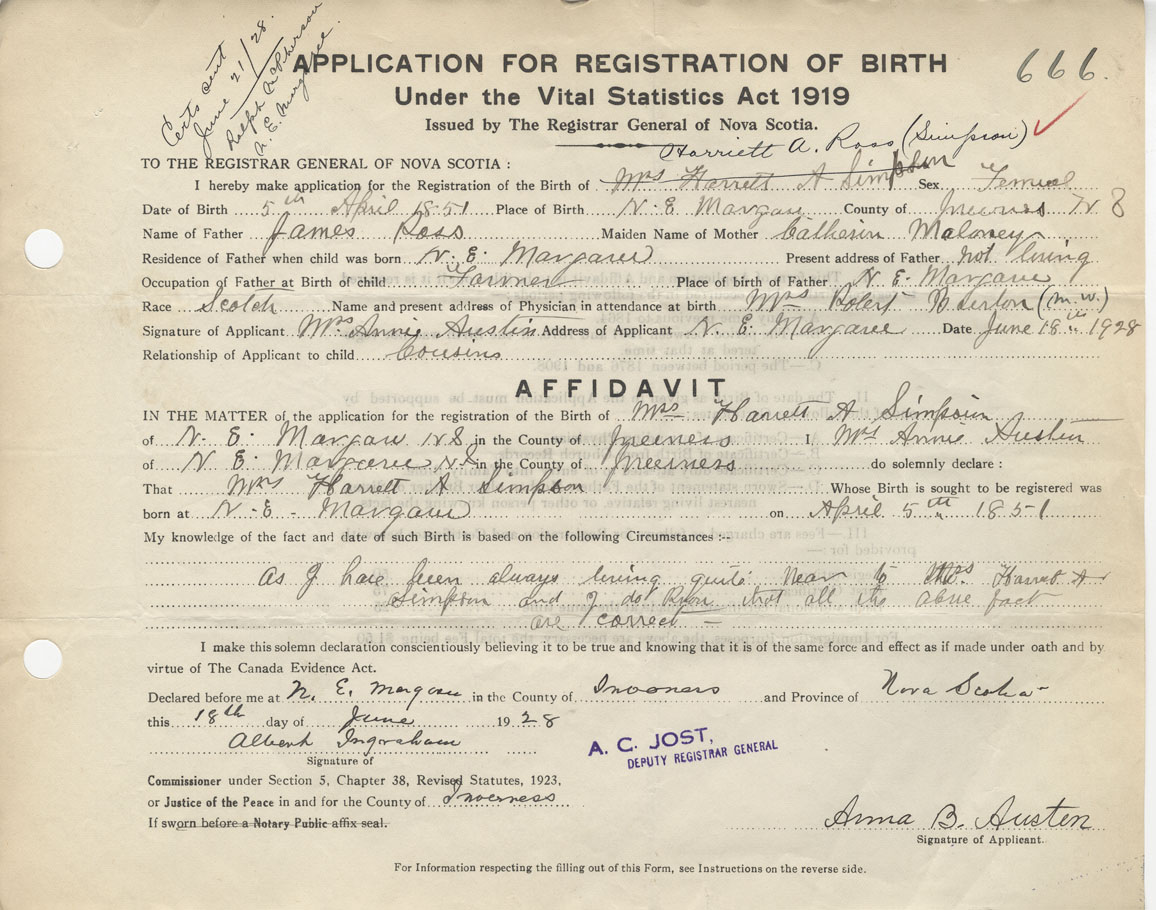 Certs sent
June 21/28.
Ralph McPherson
N. E. Margaree.
APPLICATION FOR REGISTRATION OF BIRTH
666.
Under the Vital Statistics Act 1919
Issued by The Registrar General of Nova Scotia.
Harriett A. Ross (Simpson)
TO THE REGISTRAR GENERAL OF NOVA SCOTIA :
I hereby make application for the Registration of the Birth of Mrs Harrett A Simpson Sex Femeal
Date of Birth 5th April 1851 Place of Birth N. E Margaree County of Inverness N S
Name of Father James Ross Maiden Name of Mother Catherin Maloney
Residence of Father when child was born N. E. Margaree Present address of Father not living
Occupation of Father at Birth of child Farmer Place of birth of Father N. E. Margaree
Race Scotch Name and present address of Physician in attendance at birth Mrs Robert (M.W.)
Signature of Applicant Mrs Annie Austin Address of Applicant N. E. Margaree Date June 18th 1928
Relationship of Applicant to child Cousins
AFFIDAVIT
IN THE MATTER of the application for the registration of the Birth of Mrs Harrett A Simpson
of N. E. Margaree N S in the County of Inverness I, Mrs Annie Austin
of N. E. Margaree N S in the County of Inverness do solemnly declare :
That Mrs Harrett A Simpson Whose Birth is sought to be registered was
born at N. E. Margaree on April 5th 1851
My knowledge of the fact and date of such Birth is based on the following Circumstances :--
As I have been always living quite near to Mrs Harret A
Simpson and I do know that all the above fact
are correct -
I make this solemn declaration conscientiously believing it to be true and knowing that it is of the same force and effect as if made under oath and by
virtue of The Canada Evidence Act.
Declared before me at N. E. Margaree in the County of Inverness and Province of Nova Scotia
this 18th day of June 1928
Albert Ingraham
A. C. JOST,
DEPUTY REGISTRAR GENERAL
Signature of
Commissioner under Section 5, Chapter 38, Revised Statutes, 1923,
or Justice of the Peace in and for the County of Inverness
If sworn before a Notary Public affix seal.
Anna B. Austen
Signature of Applicant.
For Information respecting the filling out of this Form, see Instructions on the reverse side.